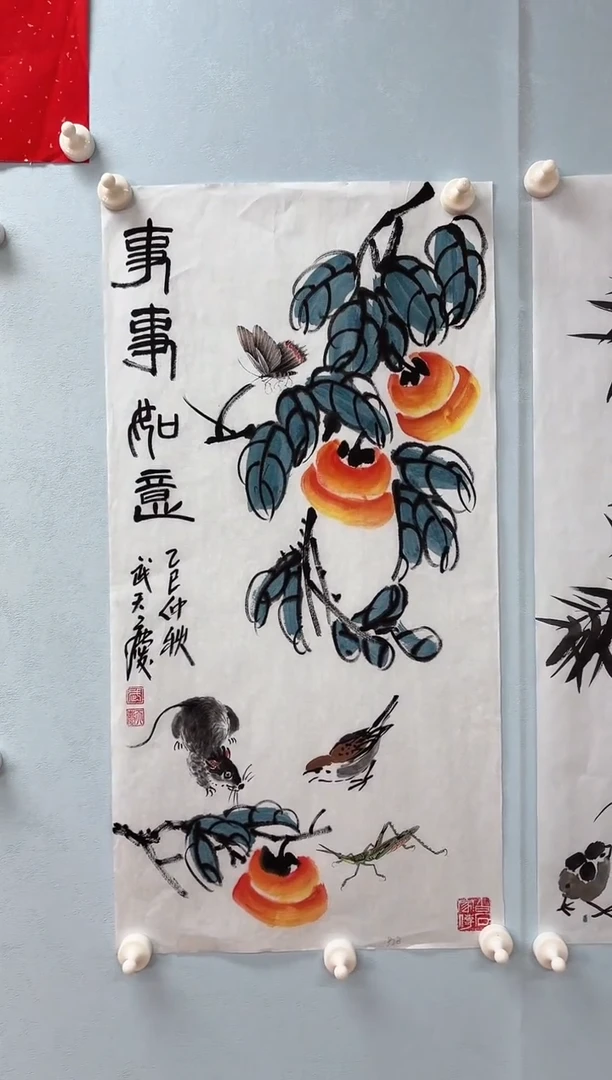 事事如意
乙巳仲秋
武天慶